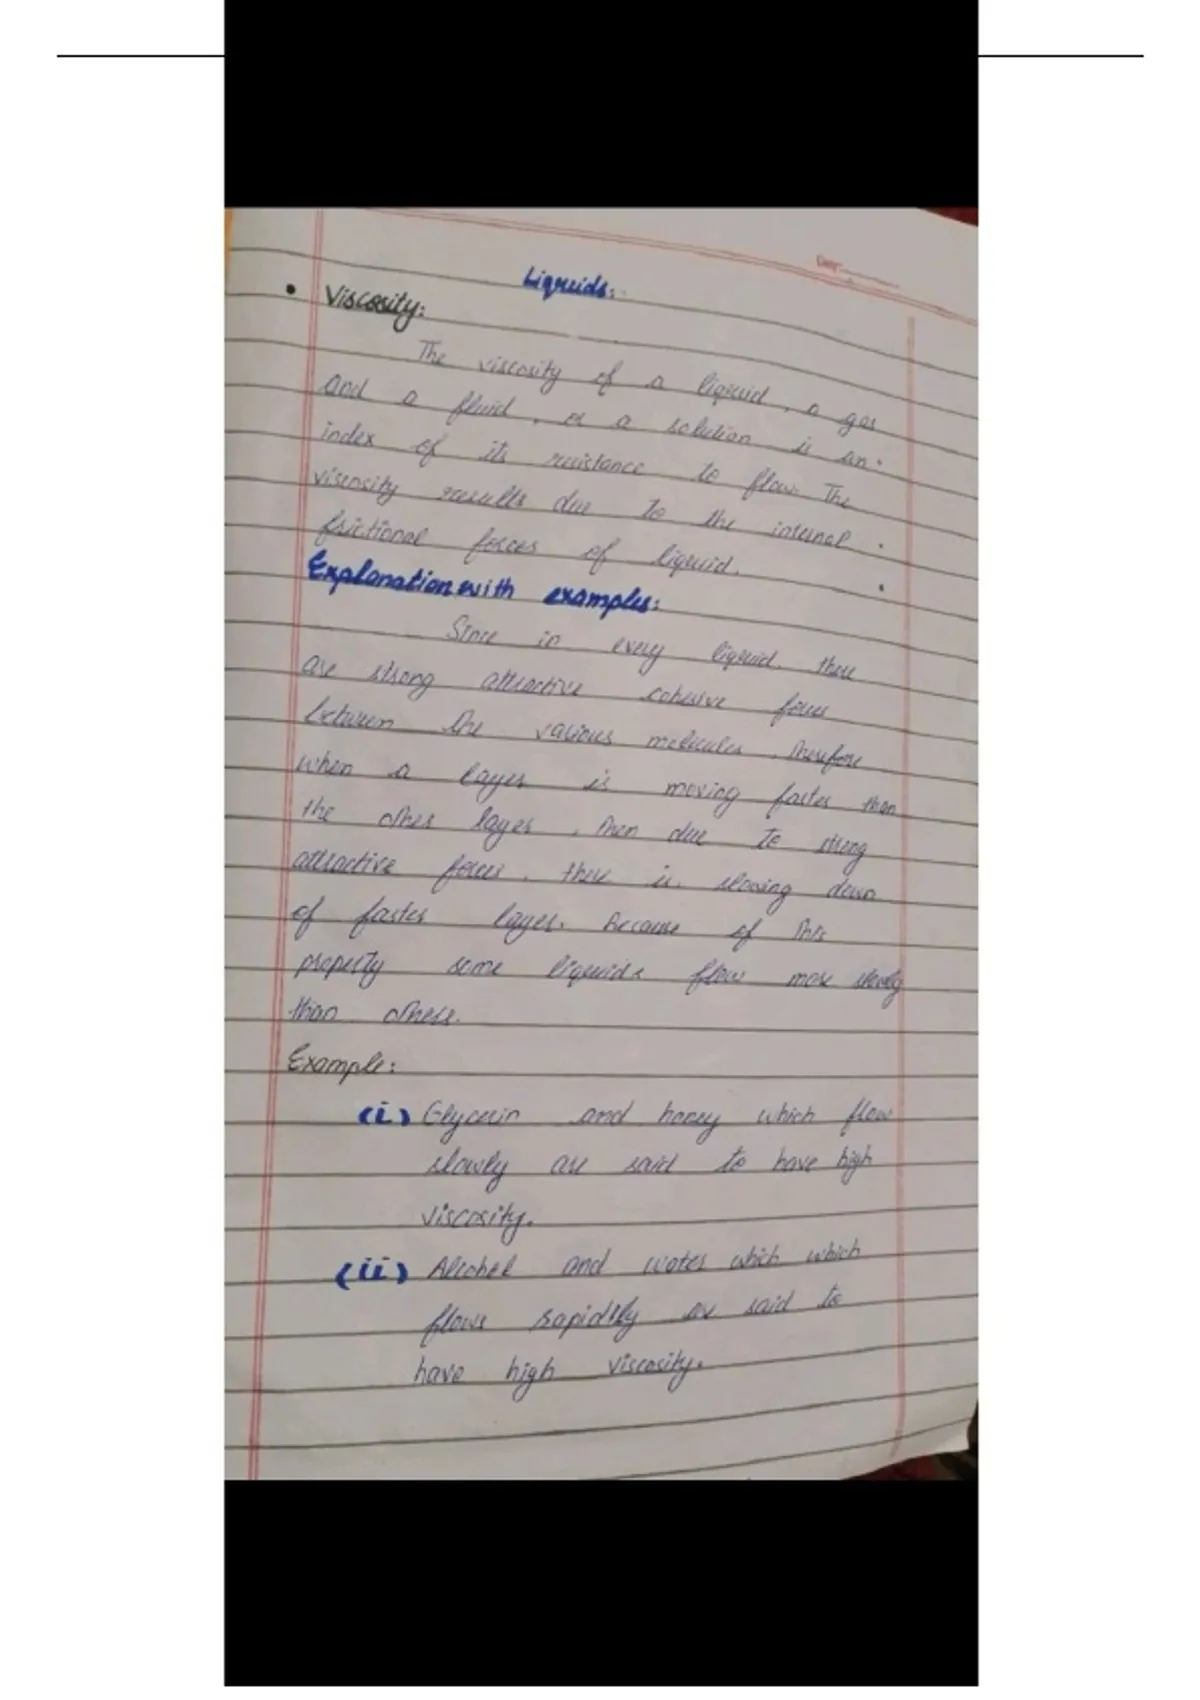 Date:
Liquids:
• Viscosity:
The viscosity of a liquid, a gas
and a fluid, or a solution is an
index of its resistance to flow. The
viscosity results due to the internal
frictional forces of liquid.
Explanation with examples:
Since in every liquid, there
are strong attractive cohesive forces
between the various molecules, therefore
when a layer is moving faster than
the other layer, then due to strong
attractive forces, there is slowing down
of faster layer. Because of this
property some liquids flow more slowly
than others.
Example:
(i) Glycerin and honey which flow
slowly are said to have high
viscosity.
(ii) Alcohol and water which which
flows rapidlly are said to
have high viscosity.